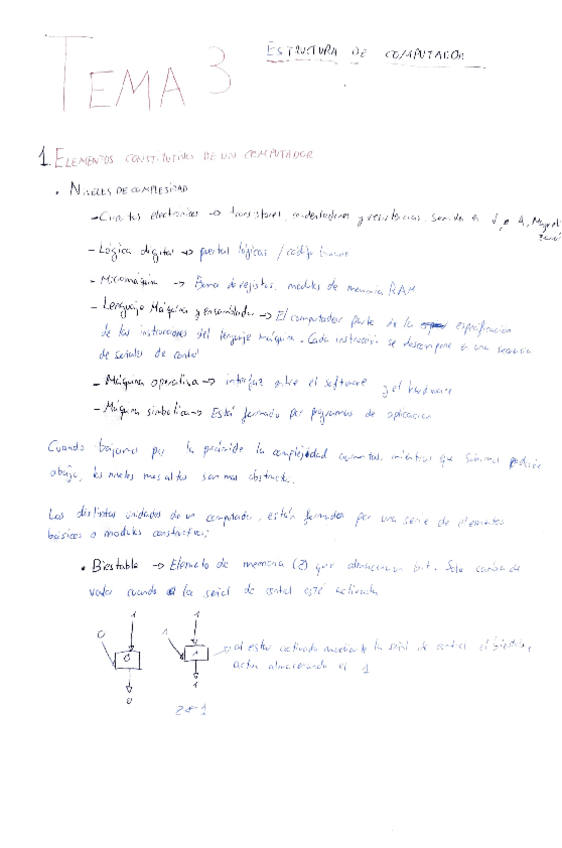 TEMA 3
ESTRUCTURA DE COMPUTADOR
1. ELEMENTOS CONSTITUTIVOS DE UN COMPUTADOR
• NIVELES DE COMPLEJIDAD
- Circuitos electrónicos → transistores, condensadores y resistencias.
- Lógica digital → puertas lógicas / código binario
- Micromáquina → Banco de registros, modulos de memoria RAM
- Lenguaje Máquina y ensamblador → El computador parte de la especificación
de las instrucciones del lenguaje máquina. Cada instrucción se descompone en una secuencia
de señales de control
- Máquina operativa → interfaz entre el software y el hardware
- Máquina simbolica → Está formado por programas de aplicacion
Cuando bajamos por la pirámide la complejidad aumenta, mientras que
abajo, los niveles mas altos son mas abstractos.
Las distintas unidades de un computador, están formadas por una serie de elementos
básicos o modulos constructivos;
• Biestable → Elemento de memoria (2) que almacena un bit. Solo cambia de
valor cuando la señal de control esté activada
0 1 0 0
1 1 1 1
→ al estar activado mediante la señal de control el biestable,
actua almacenando el 1